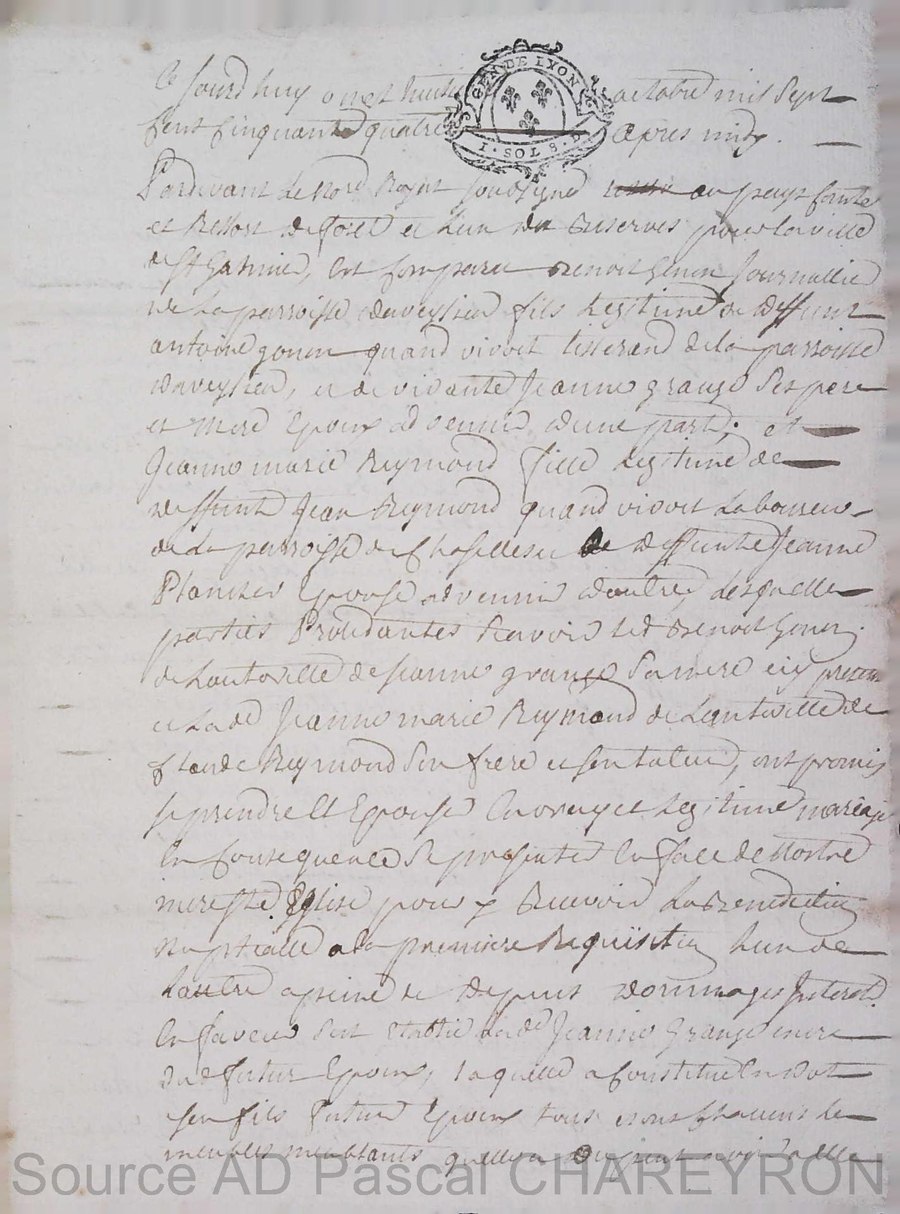 Ce Jourd huy onze huit octobre mil Sept
GEN DE LYON
Cent Cinquante quatre apres midy.
1 · SOL 8 · D
Pardevant Le No.re Royal soussigné au pays Comté
et Ressort de forest et Lun des Reserves pour la ville
de St Galmier, Est Comparu Benoit Gonon Journallier
de La parroisse daveysieu fils Legitime de deffunt
antoine gonon quand vivoit tisserand de la parroisse
daveysieu, et de vivante Jeanne grange Ses pere
et Mere Epoux advenir dune part, et
Jeanne marie Reymond fille Legitime de
deffunt Jean Reymond quand vivoit Laboureur
de La parroisse de Chaselles et de deffunte Jeanne
Planchet Epouse advenir dautre, Lesquelles
parties Procedantes Scavoir Led Benoit Gonon
de Lautorité de Jeanne grange Sa mere icy presente
et Lad. Jeanne marie Reymond de Lautorité de
Claude Reymond Son frere et son tuteur, ont promis
se prendre Et Epouser En vray et Legitime mariage
En Consequence Se presenter En face de Nostre
mere Ste Eglise pour y Recevoir La Benediction
Nuptialle a La premiere Requisition Lun de
Lautre a peine de depens dommages Interest.
En faveur Est Etablie lad. Jeanne Grange mere
du futur Epoux, Laquelle a Constitué En dot
a son fils futur Epoux tous et uns Chacuns Les
meubles meublants quelle a et peut avoir a elle
Source AD Pascal CHAREYRON